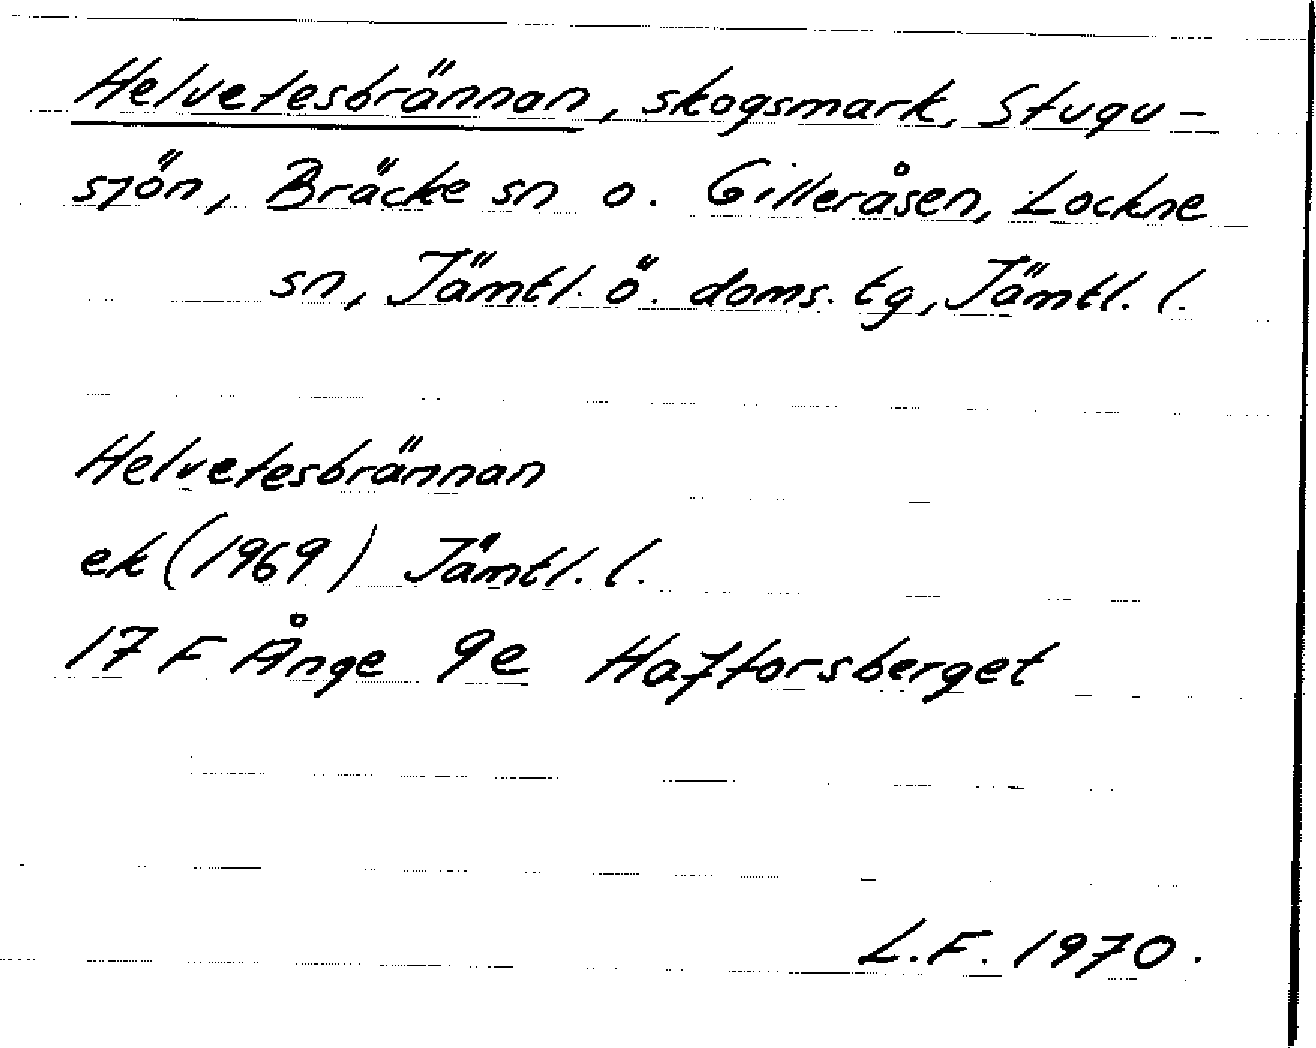 Helvetesbrännan, skogsmark, Stugu-
sjön, Bräcke sn o. Gilleråsen, Lockne
sn, Jämtl. ö. doms. tg, Jämtl. l.
Helvetesbrännan
ek (1969) Jämtl. l.
17 F Ånge 9e Hafforsberget
L.F. 1970.